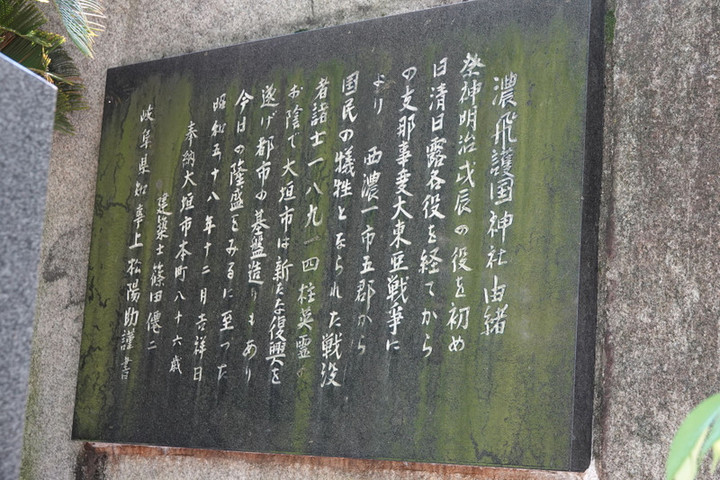 濃飛護国神社由緒
祭神明治戊辰の役を初め
日清日露各役を経てから
の支那事変大東亜戦争に
より 西濃一市五郡から
国民の犠牲となられた戦没
者諸士一八九一四柱英霊の
お陰で大垣市は新たな復興を
遂げ都市の基盤造りもあり
今日の隆盛をみるに至った
昭和五十八年十二月吉祥日
奉納大垣市本町八十六歳
建築士篠田僊二
岐阜県知事上松陽助謹書